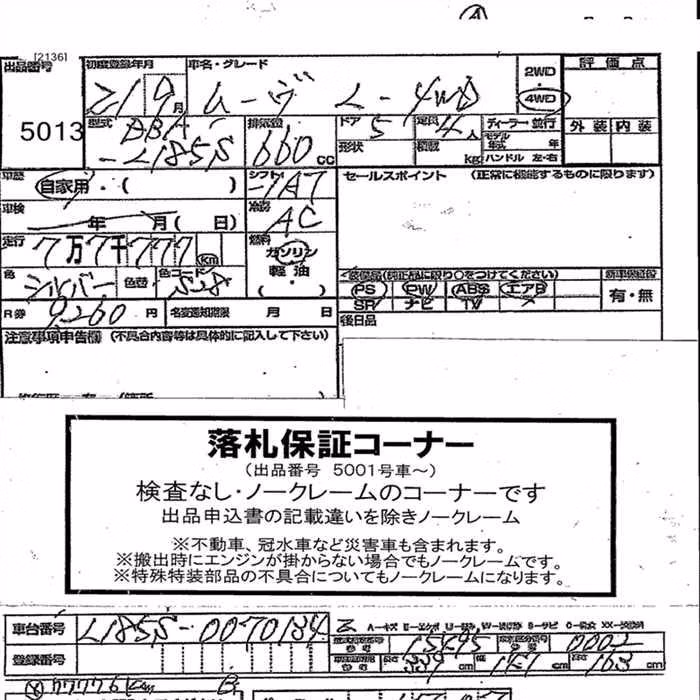 [2136]
出品番号 初度登録年月 車名・グレード 2WD 評価点
5013 21 9月 ムーヴ L-4WD 4WD
型式 DBA- 排気量 ドア 5 定員 4人 ディーラー・並行 外装 内装
L185S 660cc 形状 積載 kg モデル年式 年 ハンドル 左・右
車歴 自家用・( ) シフト IAT セールスポイント (正常に機能するものに限ります)
車検 年 月( 日) 冷房 AC
走行 7万7千777km 燃料 ガソリン
軽油
色 シルバー 色替 色コード S28 ( ・ ) 装備品(純正品に限り○をつけてください) 新車保証段
PS PW ABS エアB 有・無
R券 9260円 名変通知期限 月 日 SR ナビ TV
後日品
注意事項申告欄 (不具合内容等は具体的に記入して下さい)
落札保証コーナー
(出品番号 5001号車~)
検査なし・ノークレームのコーナーです
出品申込書の記載違いを除きノークレーム
※不動車、冠水車など災害車も含まれます。
※搬出時にエンジンが掛からない場合でもノークレームです。
※特殊特装部品の不具合についてもノークレームになります。
車台番号 L185S-0070134
登録番号 339cm 147cm 163cm
77776km